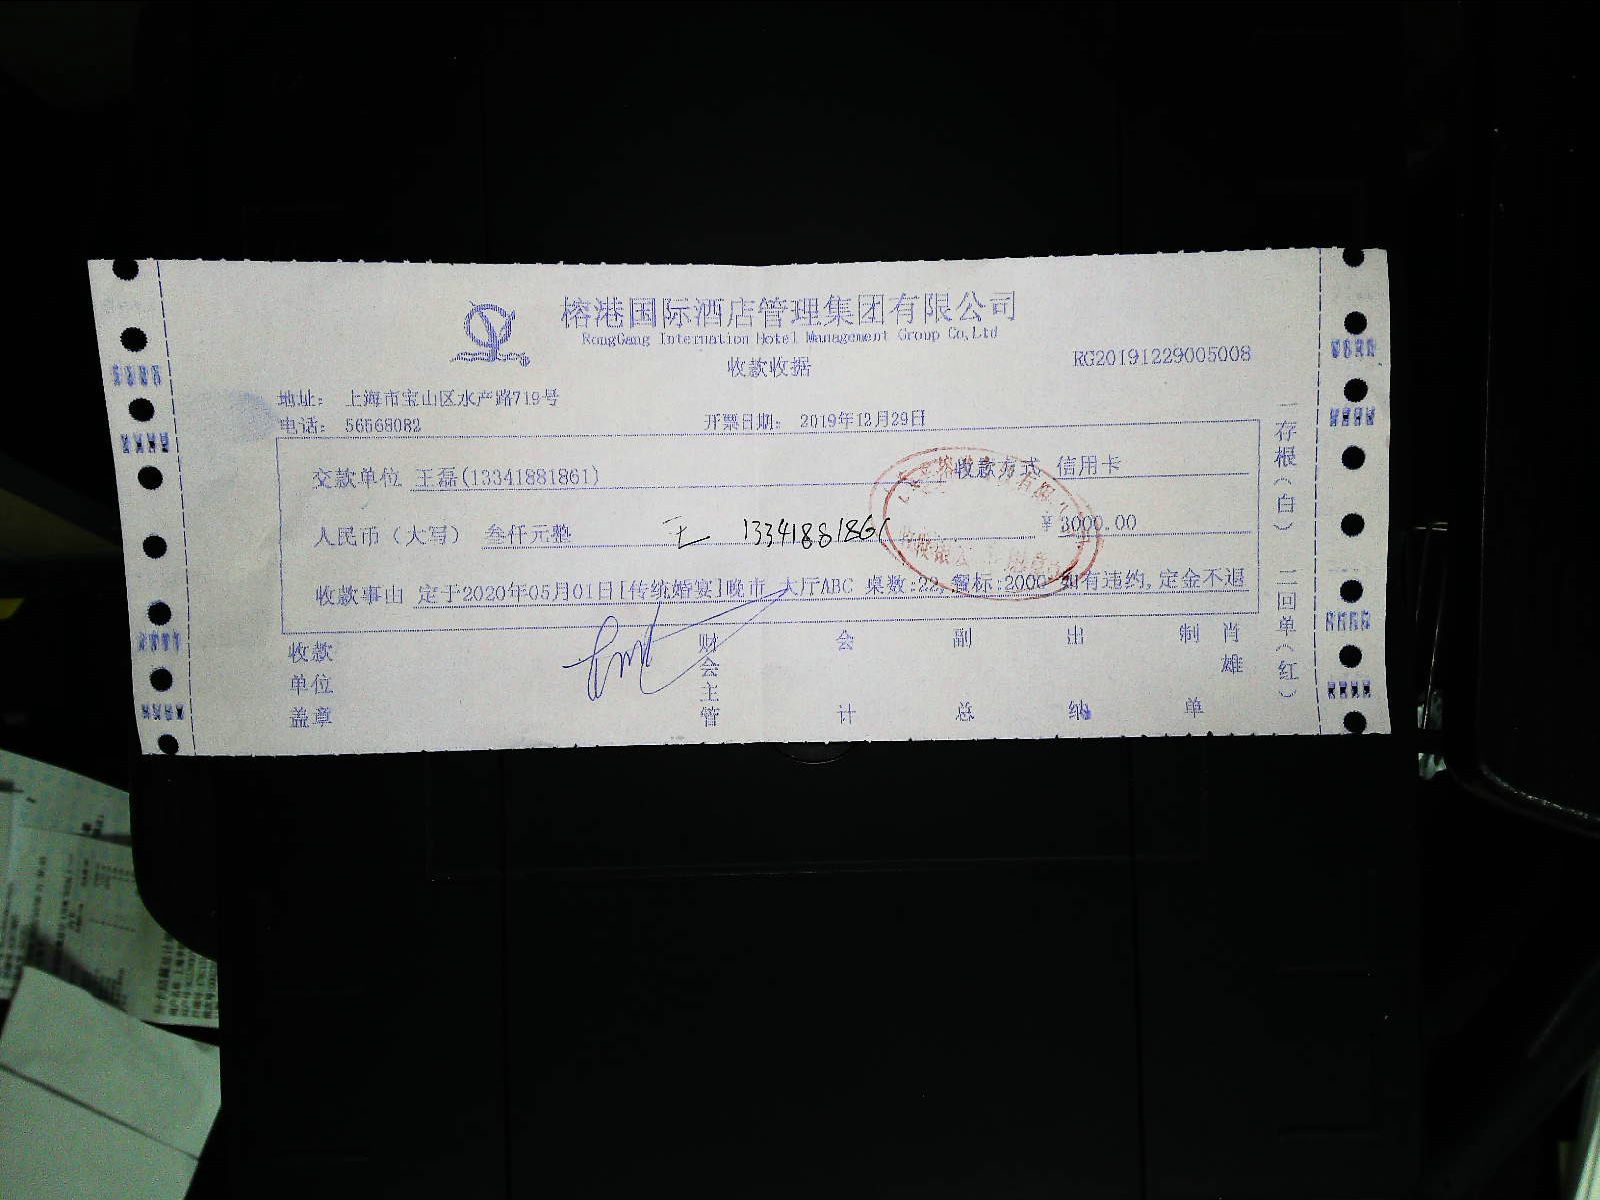 榕港国际酒店管理集团有限公司
RongGang Internation Hotel Management Group Co,Ltd
收款收据
RG20191229005008
地址： 上海市宝山区水产路719号
电话： 56568082 开票日期： 2019年12月29日
交款单位 王磊(13341881861) 收款方式 信用卡
人民币（大写） 叁仟元整 王 13341881861 ￥3000.00
收款事由 定于2020年05月01日[传统婚宴]晚市 大厅ABC 桌数:22,餐标:2000 如有违约,定金不退
收款单位盖章 财会主管 会计 副总 出纳 制单 肖雄
一存根（白） 二回单（红）